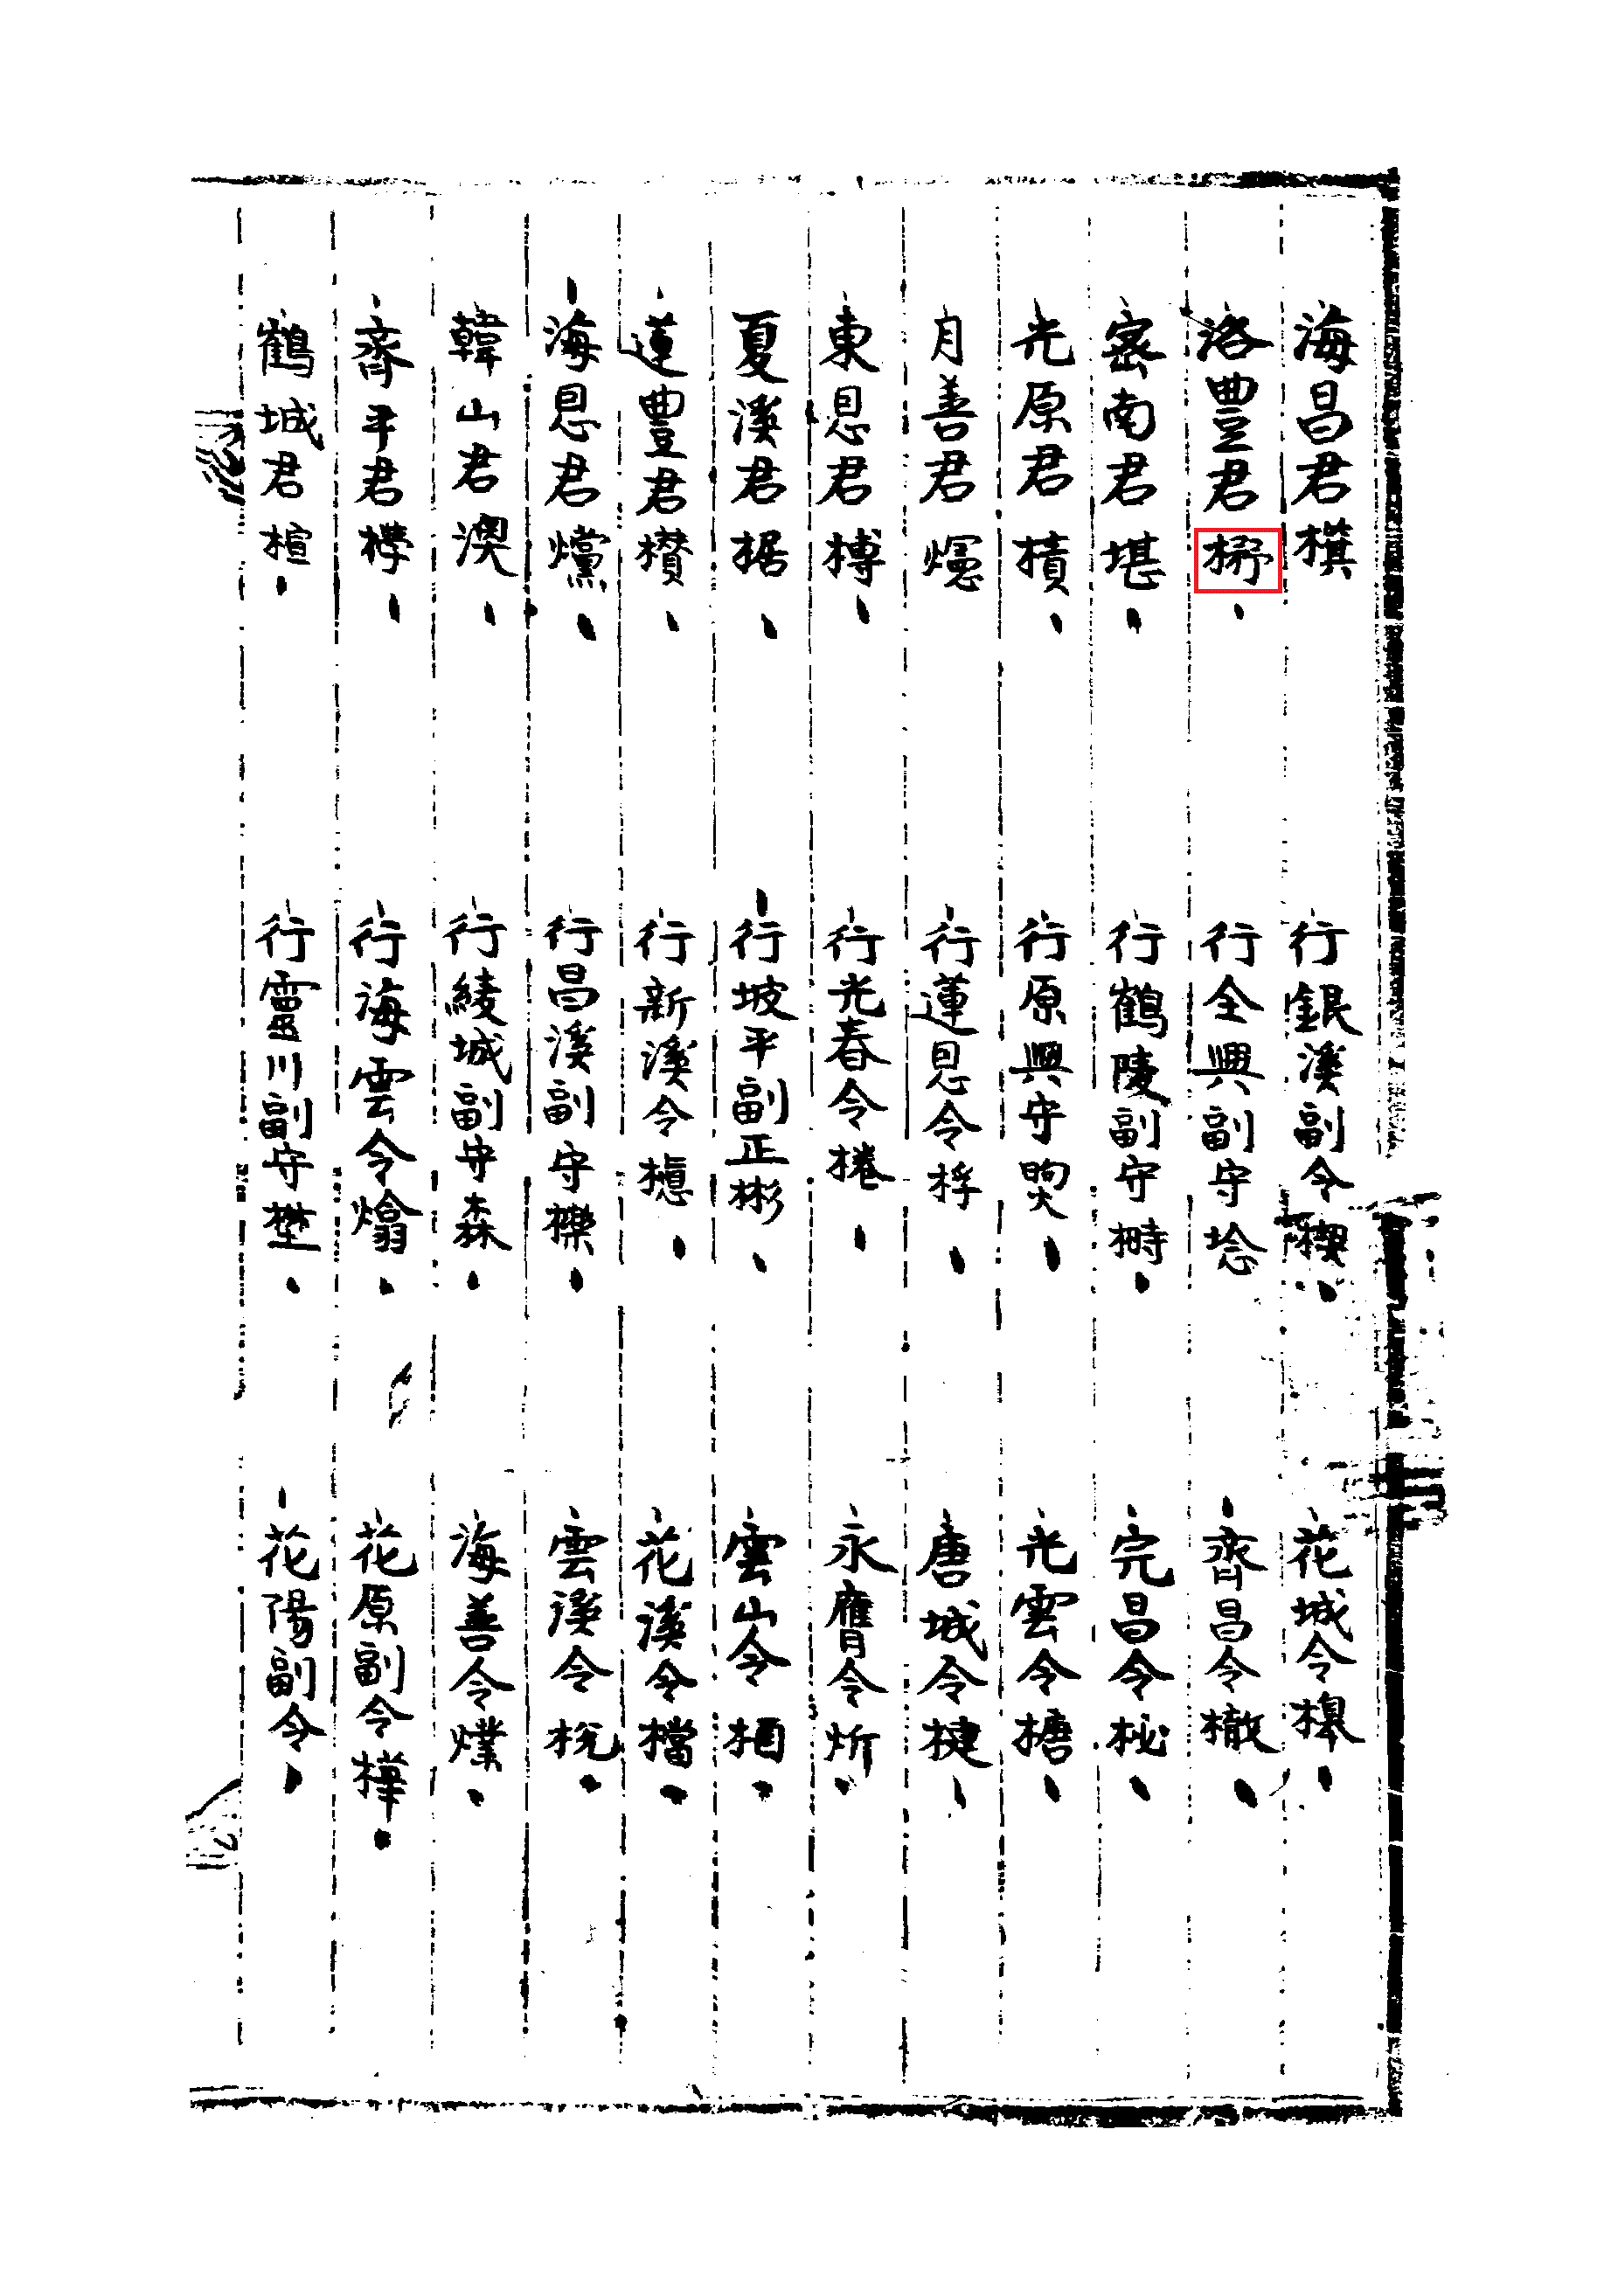 海昌君 行銀溪副令楔 花城令
洛豐君楙 行全興副守埝 齊昌令
密南君堪 行鶴陵副守榯 完昌令柲
光原君樍 行原興守煚 光雲令榶
月善君 行蓮恩令桴 唐城令楗
東恩君榑 行光春令棬 永膺令炘
夏溪君椐 行坡平副正彬 雲山令
蓮豐君 行新溪令 花溪令檔
海恩君爣 行昌溪副守榤 雲溪令梲
韓山君澳 行綾城副守森 海善令
齊平君 行海雲令熻 花原副令樺
鶴城君楦 行靈川副守 花陽副令